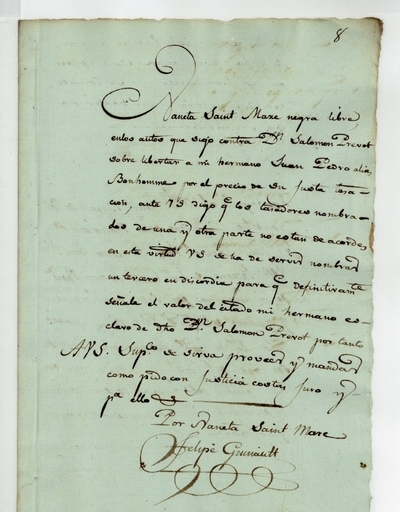 8
Naneta Saint Marc negra libre,
en los autos que sigo contra Dn. Salomon Prevot
sobre libertar a mi hermano Juan Pedro alia
Bonhomme por el precio de su justa tasa-
cion, ante VS digo q.e los tasadores nombra-
dos de una y otra parte no estan de acordes,
en esta virtud VS se ha de servir nombrar
un tercero en discordia para q.e definitivam.te
señale el valor del citado mi hermano es-
clavo de dho Dn. Salomon Prevot por tanto
A VS. Sup.co se sirva proveer y mandar
como pido con Justicia costas juro y-
p.a ello &
Por Naneta Saint Marc
Felipe Guinault